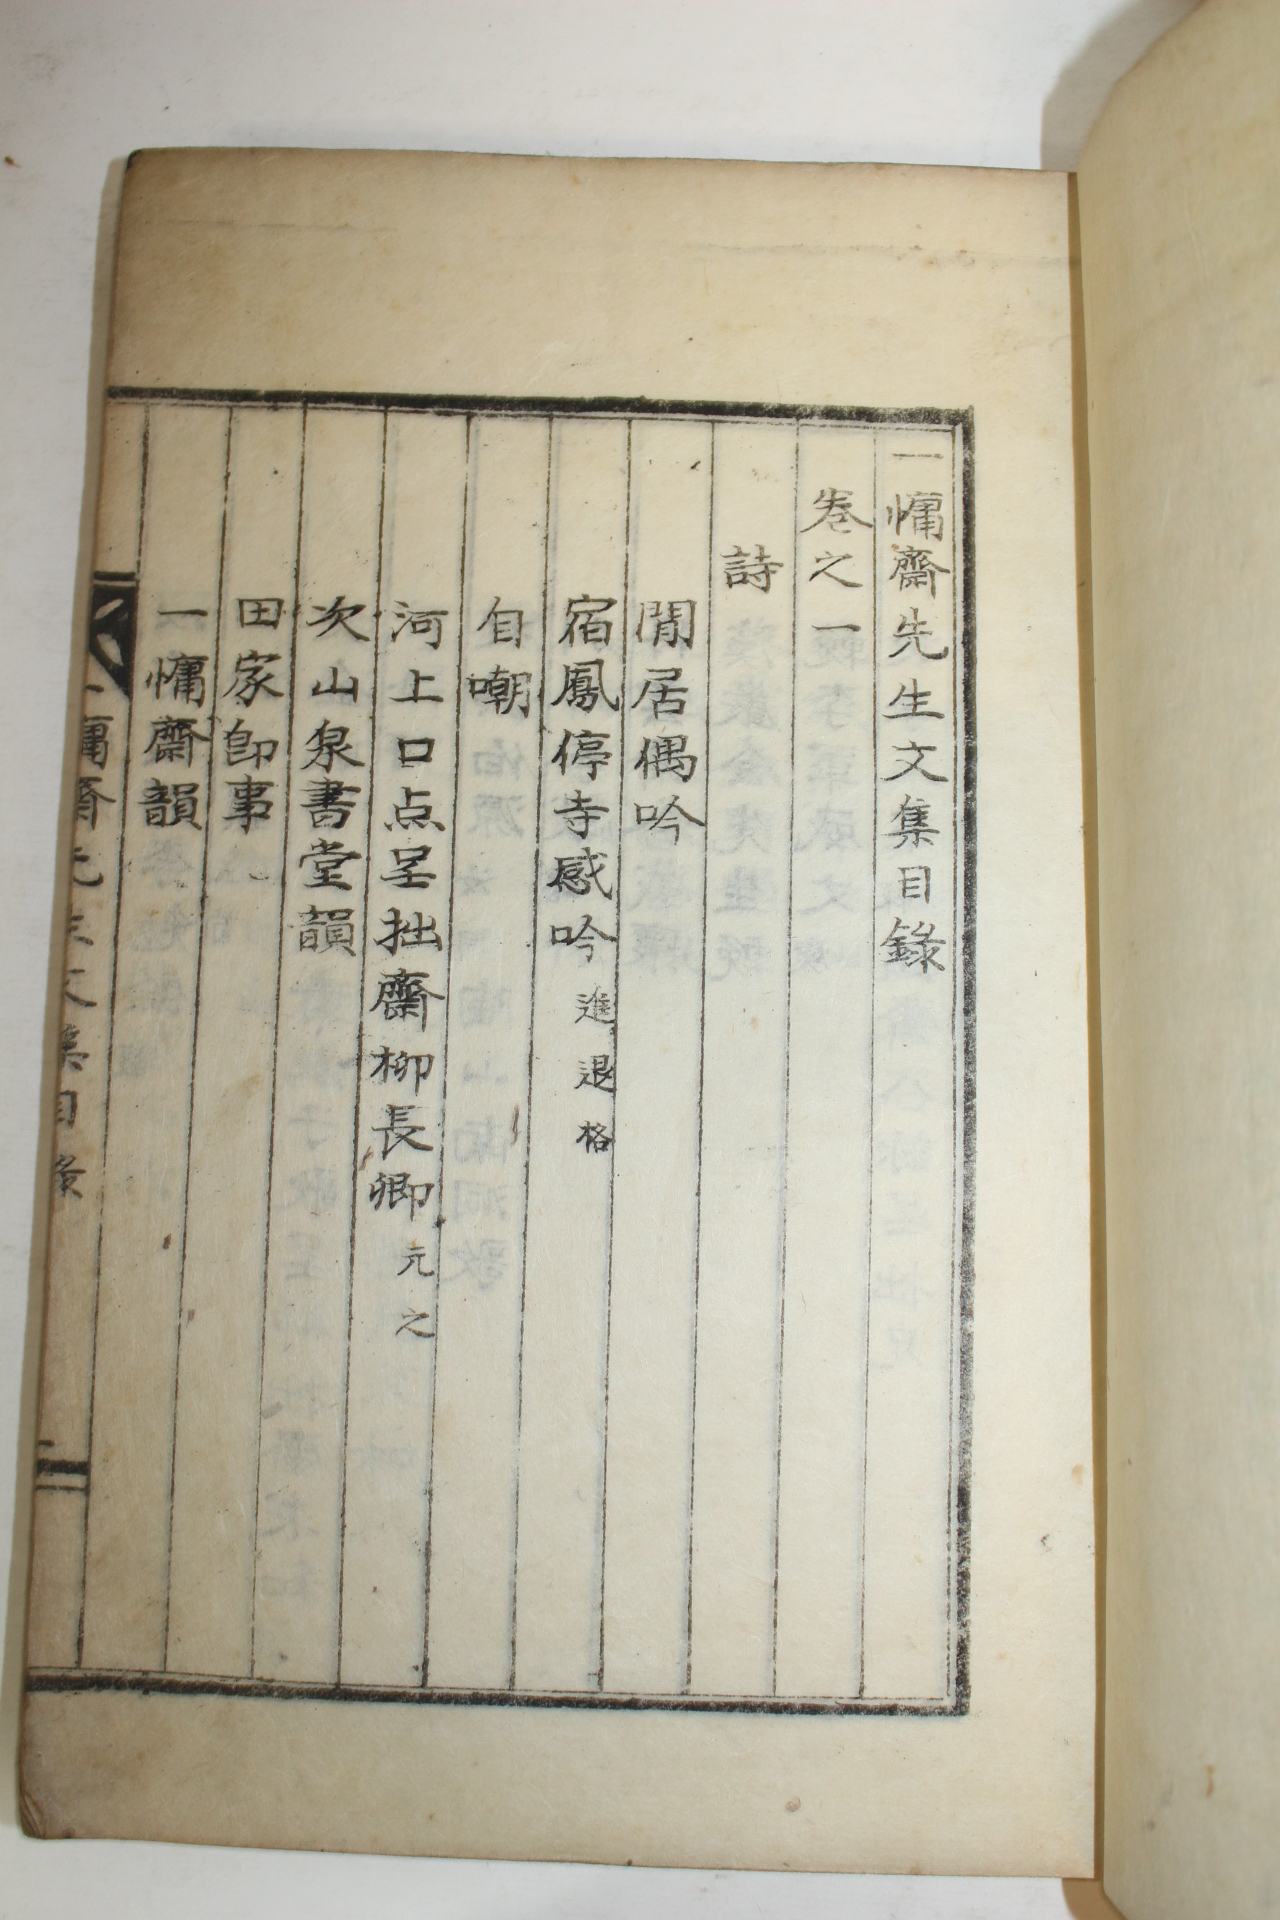 一慵齋先生文集目錄
卷之一
詩
閒居偶吟
宿鳳停寺感吟 進退格
自嘲
河上口点呈拙齋柳長卿 元之
次山泉書堂韻
田家卽事
一慵齋韻
一慵齋先生文集目錄